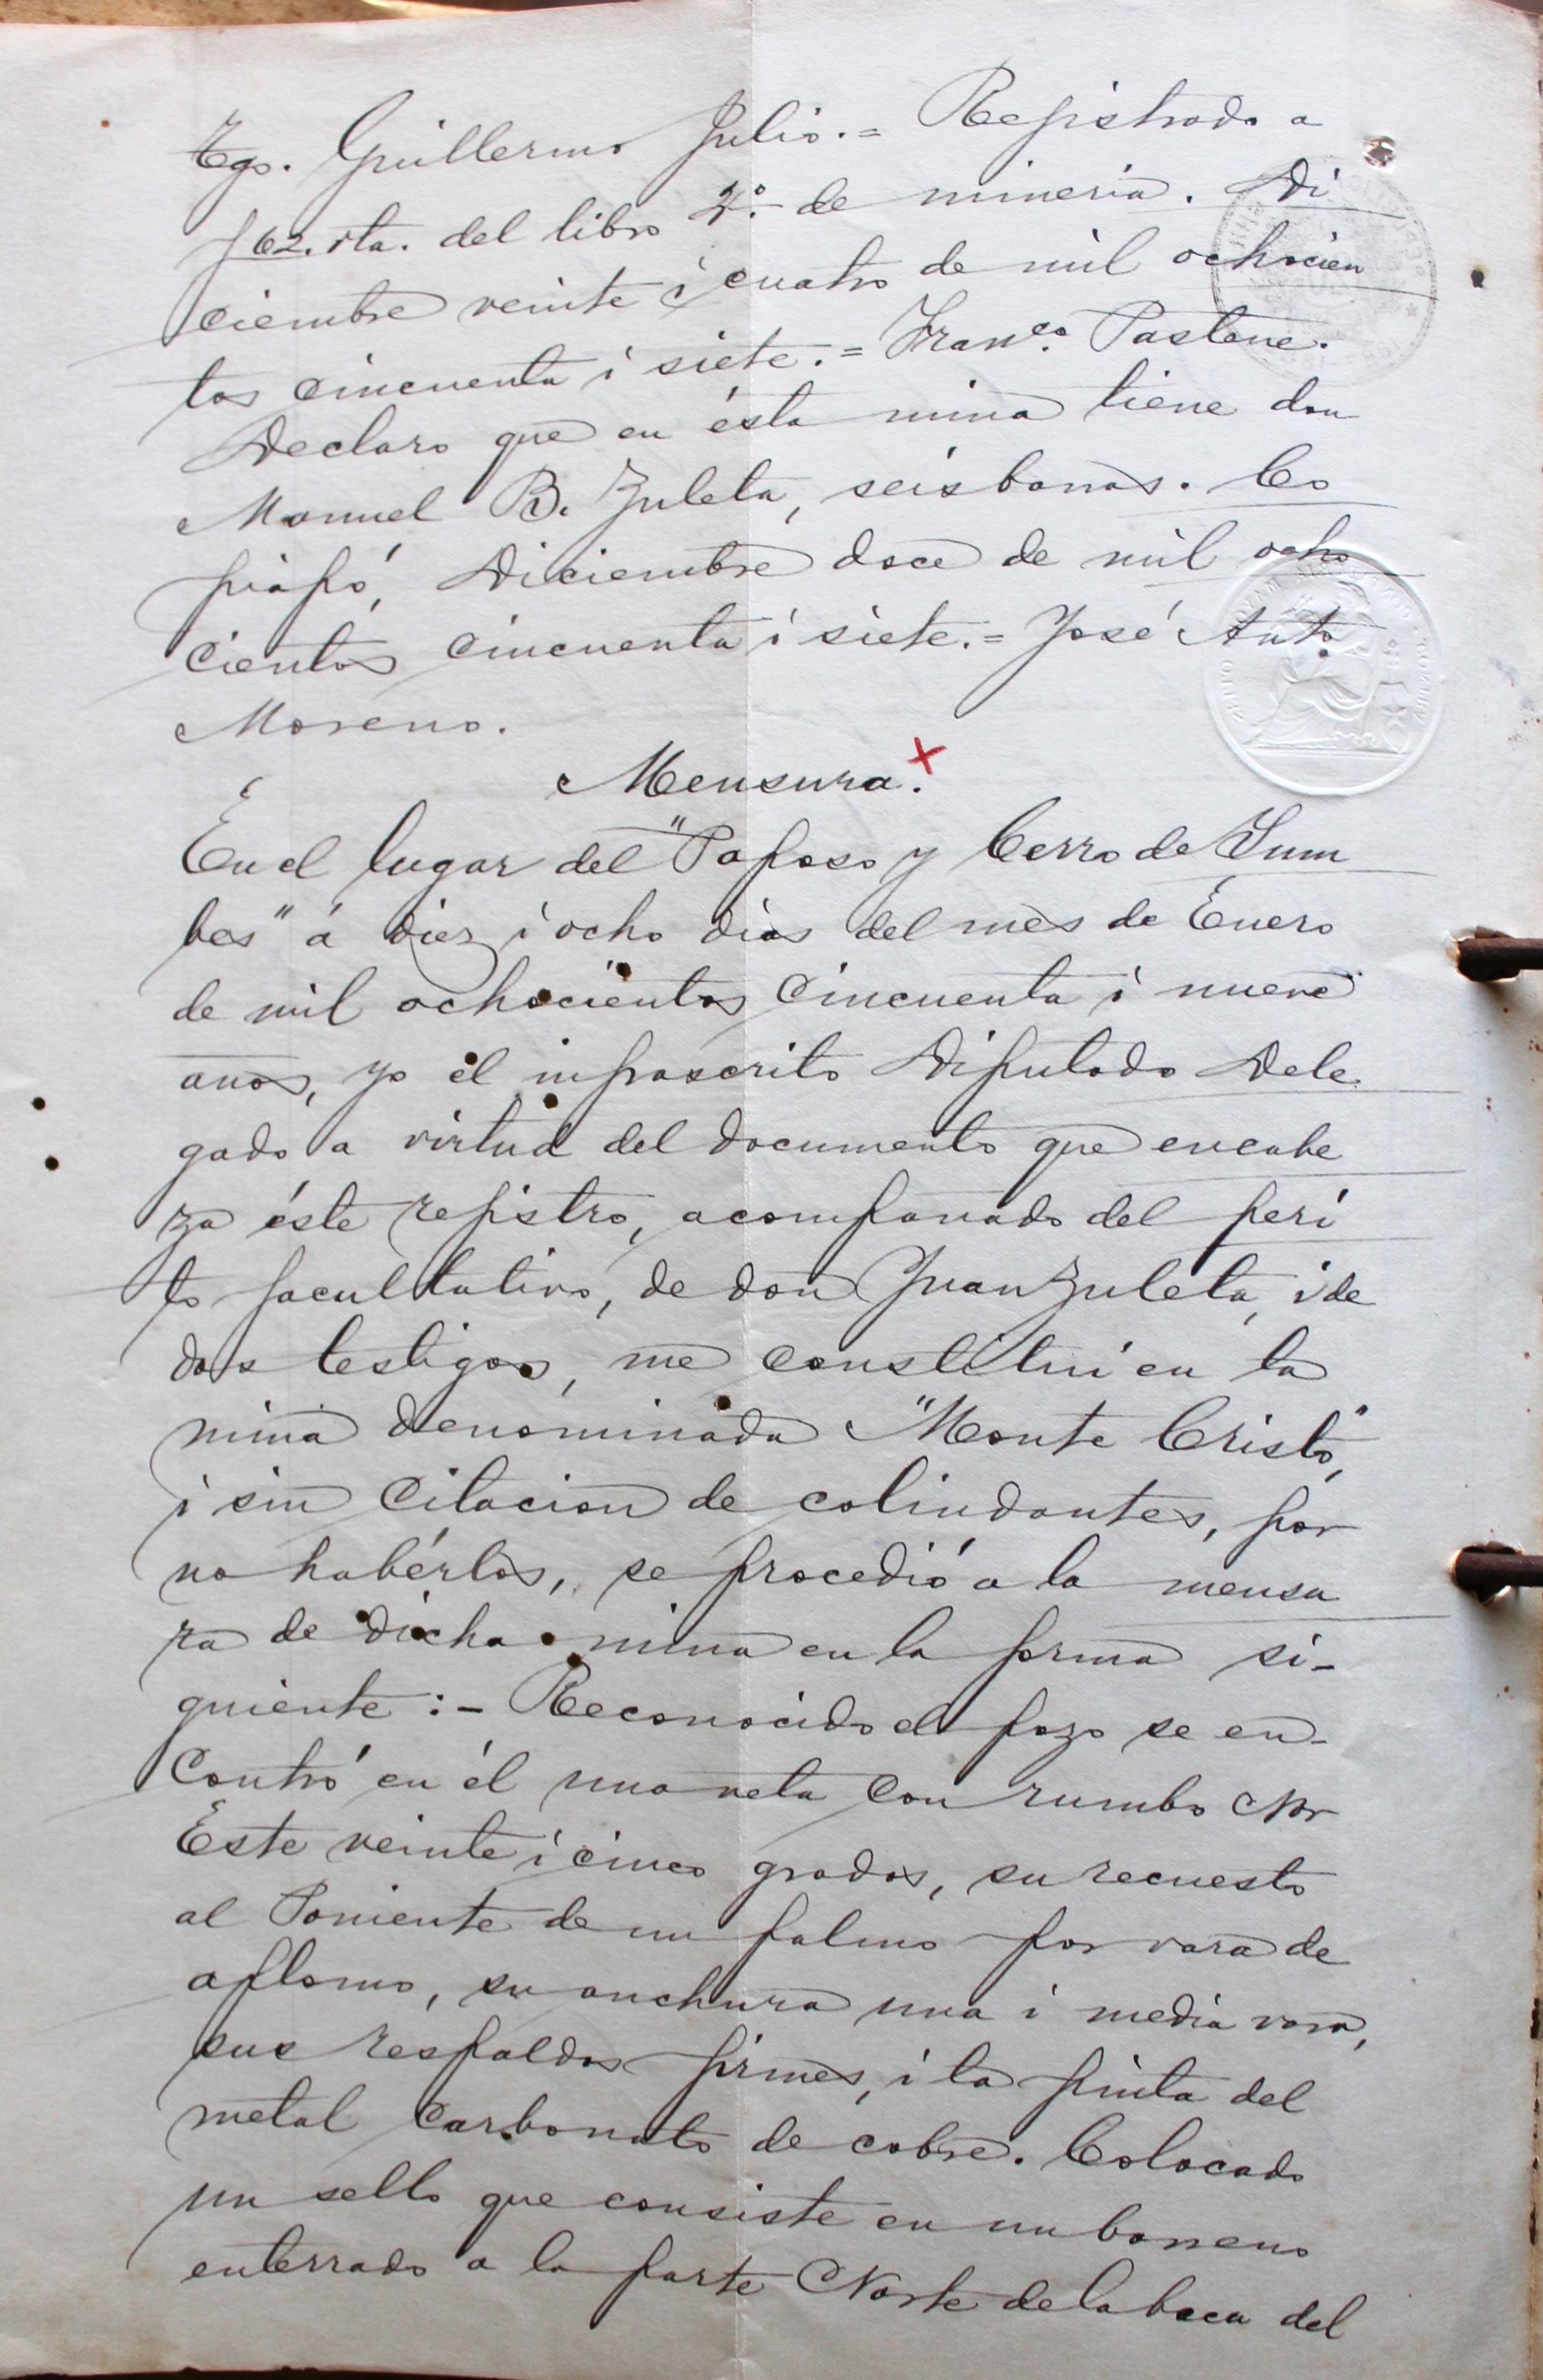 Tgo. Guillermo Julio.= Registrado a
f 62. vta. del libro 2º de mineria. Di
ciembre veinte i cuatro de mil ochocien
tos cincuenta i siete.= Franco. Pastene.
Declaro que en ésta mina tiene don
Manuel B. Zuleta, seis barras. Co
piapó, Diciembre doce de mil ocho
cientos cincuenta i siete.= José Anto.
Moreno.
Mensura.
En el lugar del "Paposo y Cerro de Yum
bes" á diez i ocho dias del mes de Enero
de mil ochocientos cincuenta i nueve
anos, yo el infrascrito Diputado Dele
gado a virtud del documento que encabe
za éste rejistro, acompanado del peri
to facultativo, de don Juan Zuleta, i de
dos testigos, me constitui en la
mina denominada "Monte Cristo",
i sin citacion de colindantes, por
no habérlos, se procedió a la mensu
ra de dicha mina en la forma si-
guiente:- Reconocido el pozo se en-
contró en él una veta con rumbo Nor
Este veinte i cinco grados, su recuesto
al Poniente de un palmo por vara de
aplomo, su anchura una i media vara,
sus respaldos firmes, i la pinta del
metal carbonato de cobre. Colocado
un sello que consiste en un barreno
enterrado a la parte Norte de la boca del